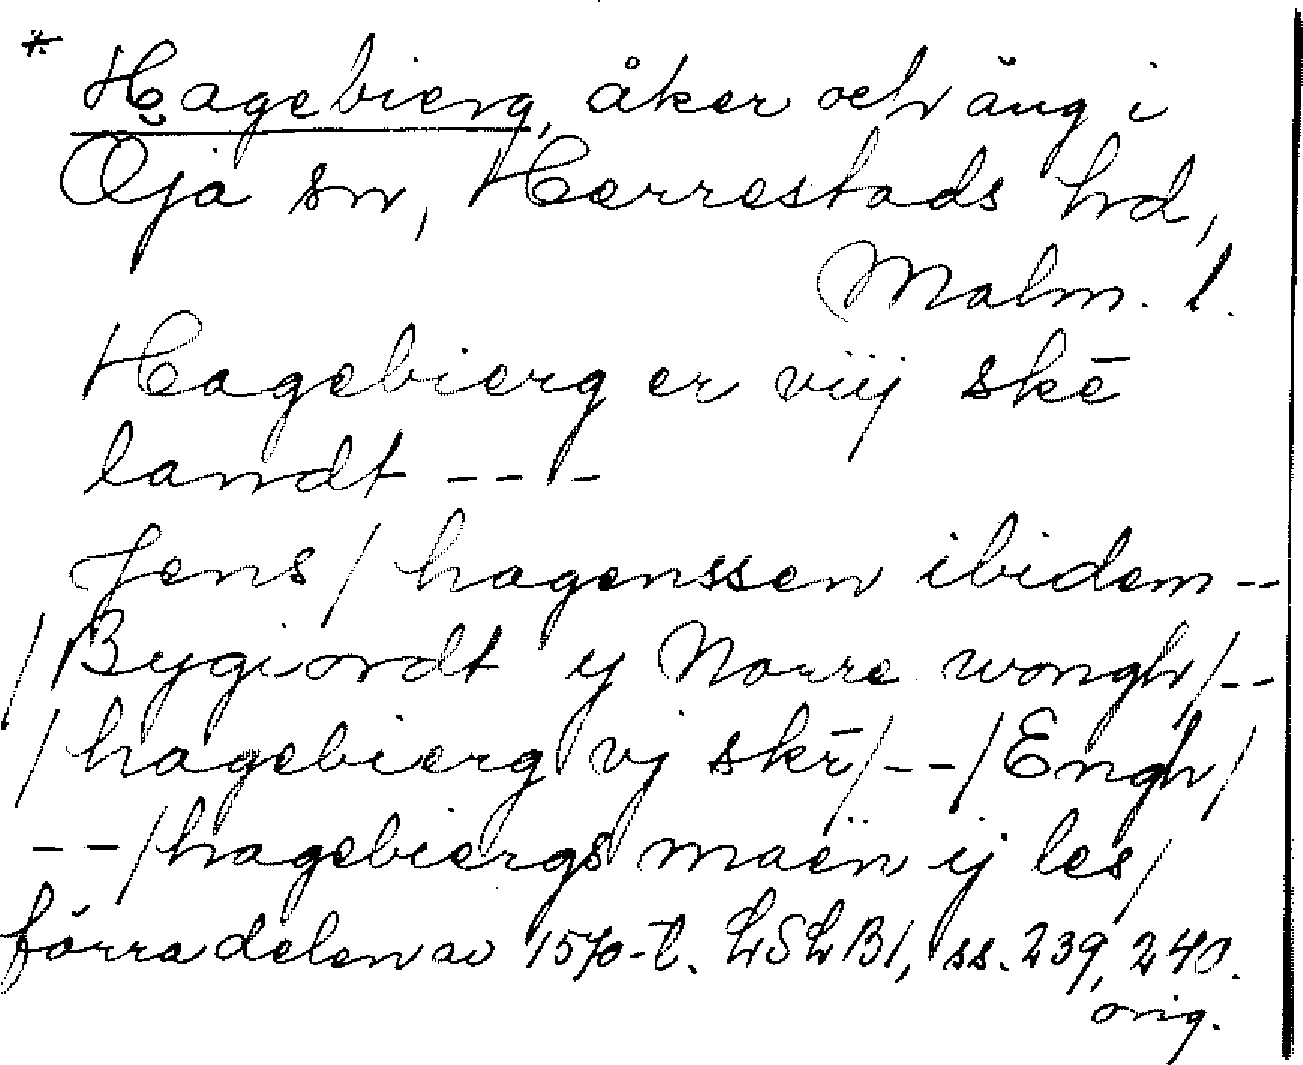 * Hagebierg, åker och äng i
Öja sn, Herrestads hd,
Malm. l.
Hagebierg er viij skē
landt - - - -
Jens / hagenssen ibidem --
/ Bygiordt ij Norre wongh / --
/ hagebierg vj skē / -- / Engh /
-- / hagebiergs maen ij les /
förra delen av 1570-t. LSLB1, ss. 239, 240.
orig.